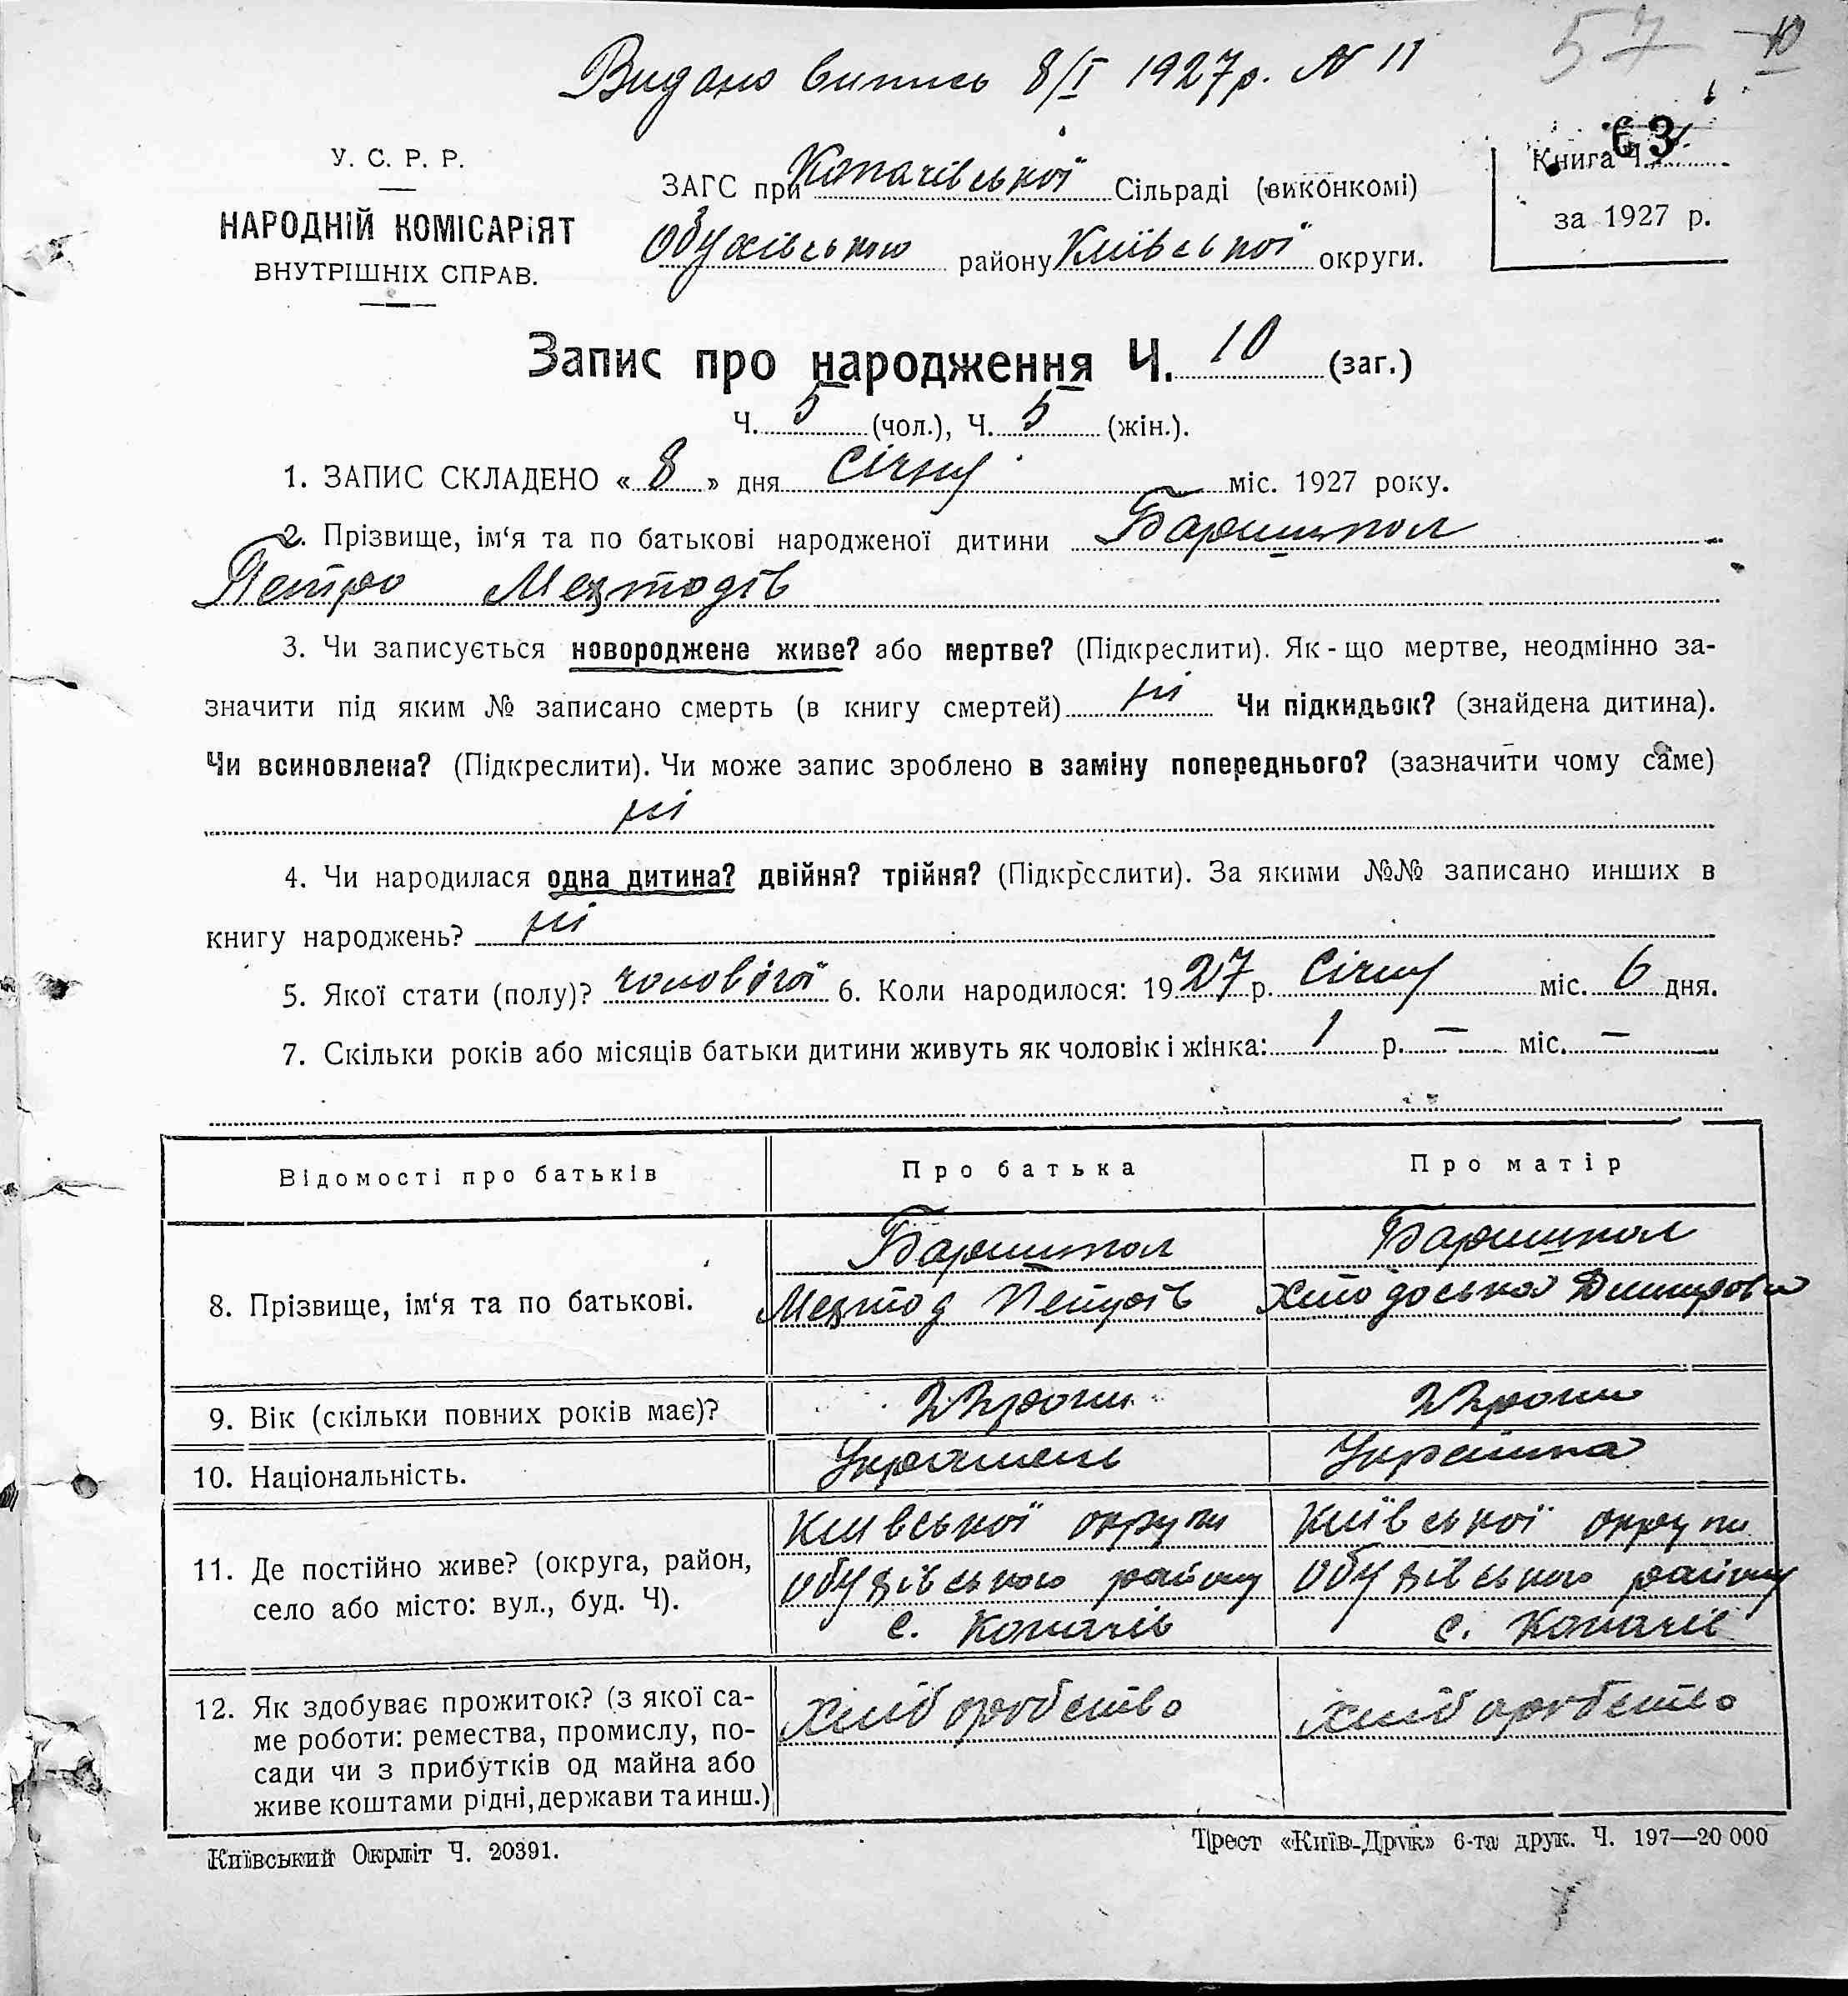 Видано випись 8/I 1927р. № 11
57 10
63
У. С. Р. Р.
НАРОДНІЙ КОМІСАРІЯТ
ВНУТРІШНІХ СПРАВ.
ЗАГС при Копачівської Сільраді (виконкомі)
Обухівського району Київської округи.
Книга Ч.
за 1927 р.
Запис про народження Ч. 10 (заг.)
Ч. 5 (чол.), Ч. 5 (жін.).
1. ЗАПИС СКЛАДЕНО «8» дня Січня міс. 1927 року.
2. Прізвище, ім‘я та по батькові народженої дитини Баришпол
Петро Мехтодів
3. Чи записується новороджене живе? або мертве? (Підкреслити). Як-що мертве, неодмінно за-
значити під яким № записано смерть (в книгу смертей) ні Чи підкидьок? (знайдена дитина).
Чи всиновлена? (Підкреслити). Чи може запис зроблено в заміну попереднього? (зазначити чому саме)
ні
4. Чи народилася одна дитина? двійня? трійня? (Підкреслити). За якими №№ записано инших в
книгу народжень? ні
5. Якої стати (полу)? чоловічої 6. Коли народилося: 1927 р. Січня міс. 6 дня.
7. Скільки років або місяців батьки дитини живуть як чоловік і жінка: 1 р. — міс. —
Відомості про батьків Про батька Про матір
8. Прізвище, ім‘я та по батькові. Баришпол Баришпол
Мехтод Петрів
9. Вік (скільки повних років має)? 22 роки 22 роки
10. Національність. Українець Українка
11. Де постійно живе? (округа, район,
село або місто: вул., буд. Ч).
Київської округи Київської округи
Обухівського району Обухівського району
с. Копачів с. Копачів
12. Як здобуває прожиток? (з якої са-
ме роботи: ремества, промислу, по-
сади чи з прибутків од майна або
живе коштами рідні, держави та инш.)
хліборобство хліборобство
Київський Окрліт Ч. 20391.
Трест «Київ-Друк» 6-та друк. Ч. 197—20 000